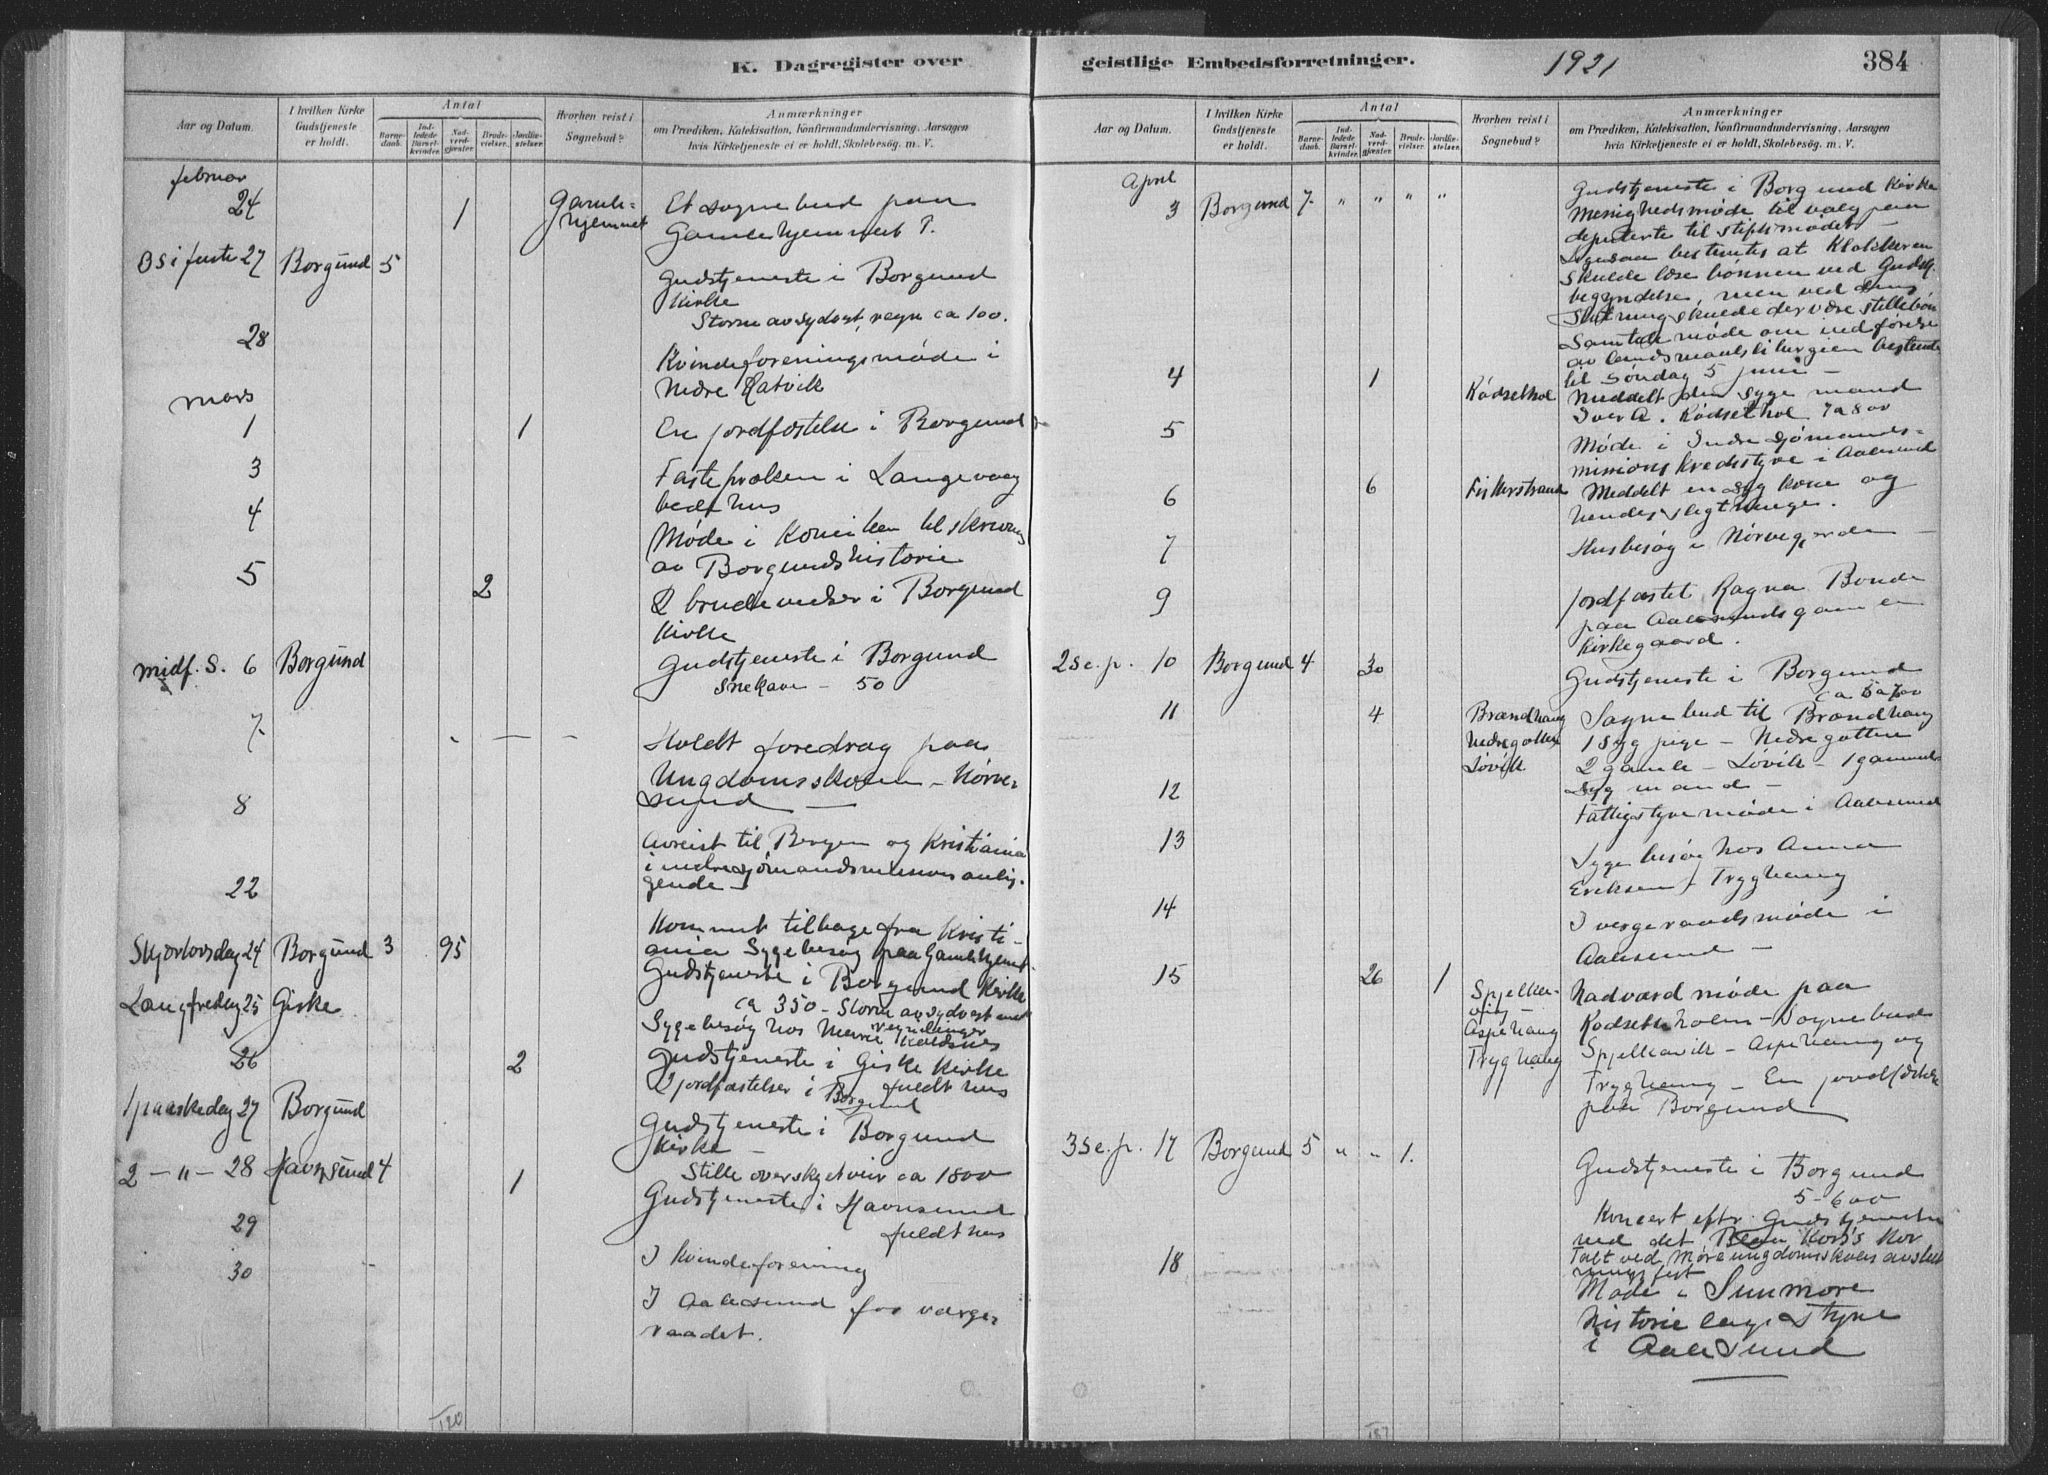 K. Dagregister over
Aar og Datum.
I hvilken Kirke Gudstjeneste er holdt.
Antal
Barnedaab.
Indledede Barselkvinder.
Nadverdgjæster.
Brudevielser.
Jordfæstelser.
Hvorhen reist i Sognebud?
Anmærkninger
om Prædiken, Katekisation, Konfirmandundervisning, Aarsagen
hvis Kirketjeneste ei er holdt, Skolebesøg. m. V.
februar
24 1 Gamle-
hjemmet
Et sogne bud paa
Gamlehjemmet
i faste 27 Borgund 5
Gudstjeneste i Borgund
Kirke
Storm av sydvest, regn ca 100.
28
Kvindeforeningsmøde i
Nedre Ratvik
mars
1 1
En jordfæstelse i Borgund
3
Faste præken i Langevaag
bedehus
4
Møde i Komiteen til skrivning
av Borgundshistorie
5 2
2 brudevielser i Borgund
Kirke
midf. S. 6 Borgund
Gudstjeneste i Borgund
Snekave – 50
7
Holdt foredrag paa
Ungdomsskolen – Nørve-
sund
8
Avreist til Bergen og Kristiania
i indre sjømandsmissions anlig-
gende
22
Kommet tilbage fra Kristi-
ania Sygebesøg paa Gamlehjemt.
Skjærtorsdag 24 Borgund 3 95
Gudstjeneste i Borgund Kirke
ca 350 – Storm av sydvest med
regnbyger
Sygebesøg hos Marie Kaldsnes
Langfredag 25 Giske
Gudstjeneste i Giske Kirke
fuldt hus
26 2
2 jordfæstelser i Borgund
1 paaskedag 27 Borgund
Gudstjeneste i Borgund
Kirke –
Stille overskyet veir ca 1800
2 – " – 28 Havnsund 4 1
Gudstjeneste i Havnsund
fuldt hus
29
I kvindeforening
30
I Aalesund for værge-
raadet.
120
geistlige Embedsforretninger.
1921
384
Aar og Datum.
I hvilken Kirke Gudstjeneste er holdt.
Antal
Barnedaab.
Indledede Barselkvinder.
Nadverdgjæster.
Brudevielser.
Jordfæstelser.
Hvorhen reist i Sognebud?
Anmærkninger
om Prædiken, Katekisation, Konfirmandundervisning, Aarsagen
hvis Kirketjeneste ei er holdt, Skolebesøg. m. V.
April
3 Borgund 7. " " " "
Gudstjeneste i Borgund Kirke
Menighedsmøde til valg paa
deputerte til stiftsmødet –
Ligesaa bestemtes at Klokkeren
skulde læse bønnen ved Gudstj.
begyndelse, men ved dens
Slutning skulde der være stillebøn
Samtidig møde om indførelse
av landsmaalsliturgien bestemte
til søndag 5 juni –
4 1 Rødsethol
Meddelt den syge mand
Iver A. Rødsethol 7 a 800
5
Møde i Indre sjømands-
missions kredsstyre i Aalesund
6 6 Fiskerstrand
Meddelt en syg kone og
hendes slegtninge.
7
Husbesøg i Nørvegjerde –
9
Jordfæstet Ragna Bonde
paa Aalesunds gamle
kirkegaard.
2 S. e. p. 10 Borgund 4 30
Gudstjeneste i Borgund
ca 5 a 700
11 4 Brændhaug
Nedregotten
Løvik
Sognebud til Brændhaug
1 syg pige – Nedregotten
2 gamle – Løvik – 1 gammel
syg mand –
12
Fattigstyremøde i Aalesund
13
Sygebesøg hos Anna
Eriksen Tryghaug
14
I vergeraadsmøde i
Aalesund –
15 26 1 Spjelka-
vig
Aspehaug
Tryghaug
Nadværdmøde paa
Rødsetholen – Sognebud
Spjelkavik – Aspehaug og
Tryghaug – En jordfæstelse
paa Borgund
3 S. e. p. 17 Borgund 5 " " 1.
Gudstjeneste i Borgund
5–600
Koncert efter Gudstjenesten
ved det Blaa Kors's Kor
Talt ved Møre ungdomsskoles avslut
nings fest
18
Møde i Sunmøre
historielags Styre
i Aalesund